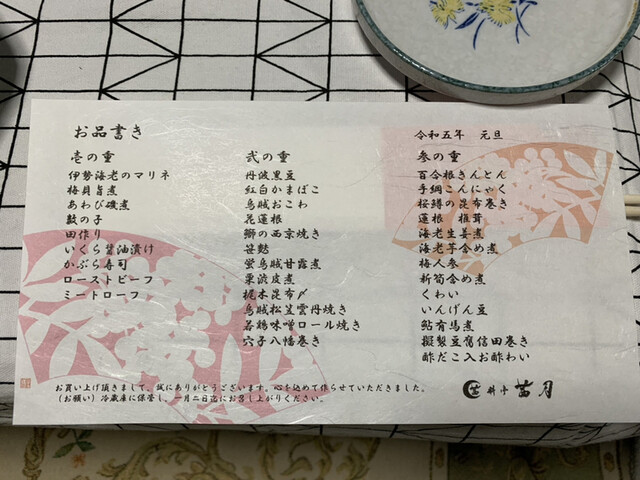 お品書き
令和五年 元旦
壱の重
伊勢海老のマリネ
梅貝旨煮
あわび磯煮
数の子
田作り
いくら醤油漬け
かぶら寿司
ローストビーフ
ミートローフ
弐の重
丹波黒豆
紅白かまぼこ
烏賊おこわ
花蓮根
鰤の西京焼き
笹麩
蛍烏賊甘露煮
粟渋皮煮
梶木昆布〆
烏賊松笠雲丹焼き
若鶏味噌ロール焼き
穴子八幡巻き
参の重
百合根きんとん
手綱こんにゃく
桜鱒の昆布巻き
蓮根 椎茸
海老生姜煮
海老芋含め煮
梅人参
新筍含め煮
くわい
いんげん豆
鮎有馬煮
擬製豆腐信田巻き
酢だこ入お酢わい
お買い上げ頂きまして、誠にありがとうございます。心を込めて作らせていただきました。
(お願い)冷蔵庫に保管し、一月二日迄にお召し上がりください。
料亭 苗月